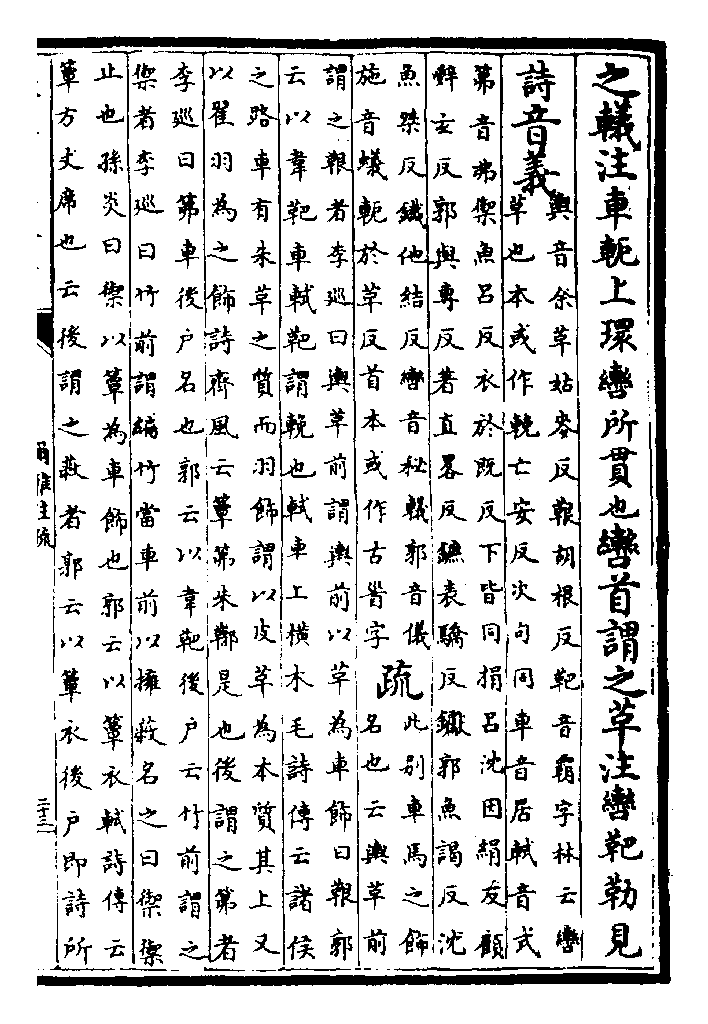 之轙注車軛上環轡所貫也轡首謂之革注轡靶勒見
詩音義
輿音余革姑麥反鞎胡根反靶音霸字林云轡
革也本或作輓亡安反次句同車音居軾音武
茀音弗禦魚呂反衣於既反下皆同捐呂沈囙絹反顧
辤玄反郭與專反著直畧反鑣表驕反钀郭魚謁反沈
魚桀反鐵他結反轡音秘轙郭音儀
施音蟻軛於革反首本或作古䭫字
疏
此别車馬之飾
名也云輿革前
謂之鞎者李廵曰輿革前謂輿前以革為車飾曰鞎郭
云以韋靶車軾靶謂輓也軾車上横木毛詩傳云諸侯
之路車有朱革之質而羽飾謂以皮革為本質其上又
以翟羽為之飾詩齊風云簟茀朱鞹是也後謂之茀者
李廵曰茀車後户名也郭云以韋靶後户云竹前謂之
禦者李廵曰竹前謂編竹當車前以擁蔽名之曰禦禦
止也孫炎曰禦以簟為車飾也郭云以簟衣軾詩傳云
簟方文席也云後謂之蔽者郭云以簟衣後户即詩所
爾雅注疏
二十三